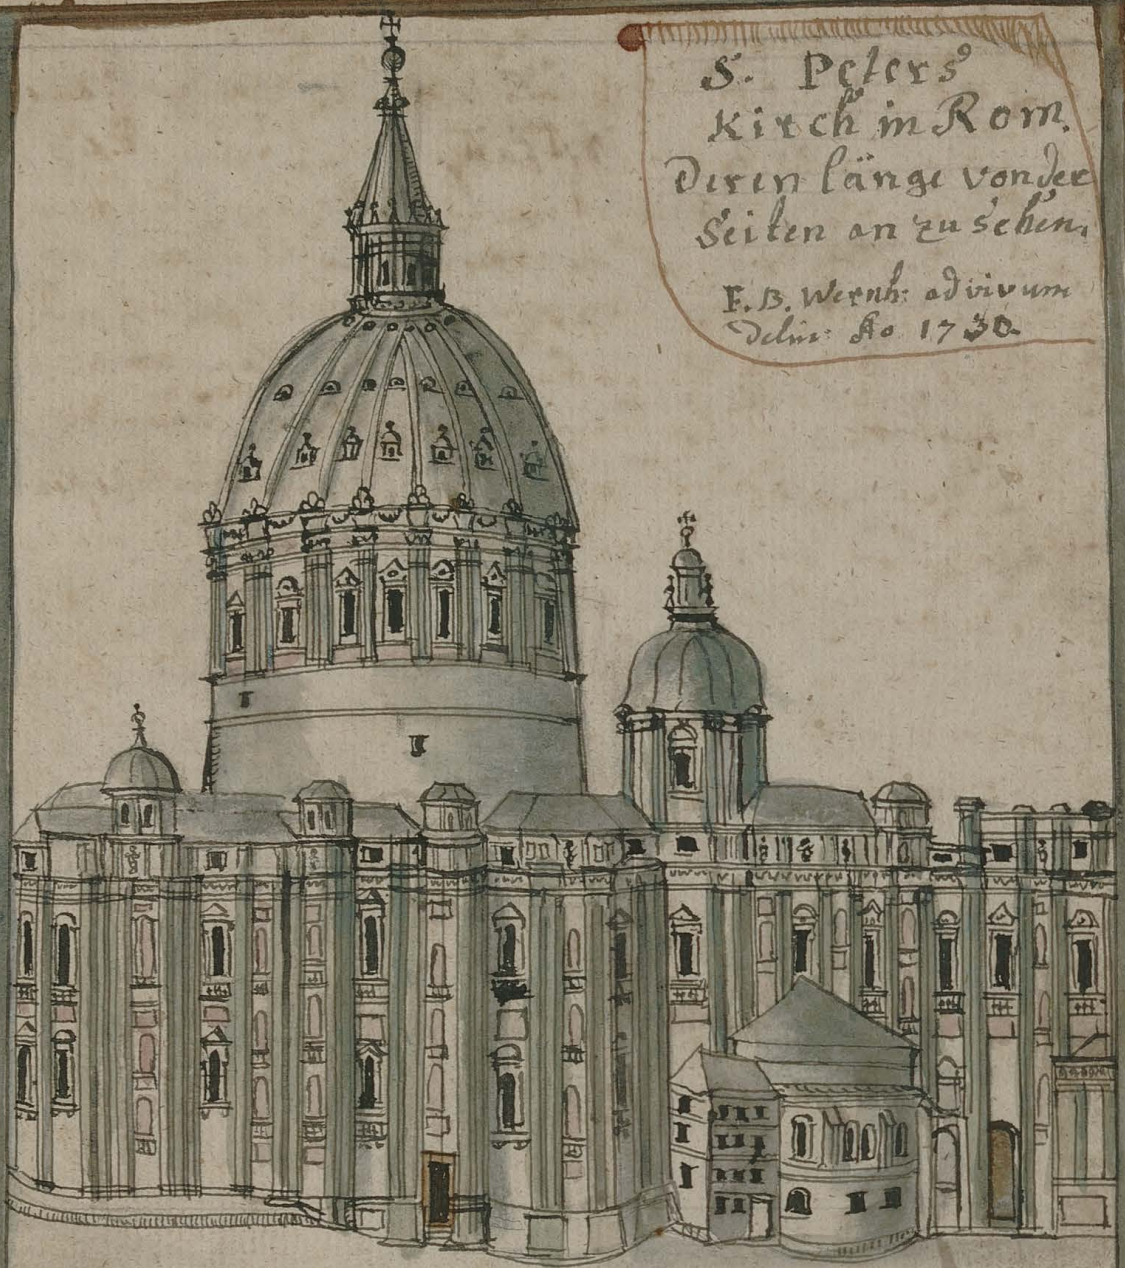 S. Peters
Kirch in Rom.
Deren länge von der
Seiten an zu sehen.
F. B. Wernh: ad vivum
delin: Ao 1730.